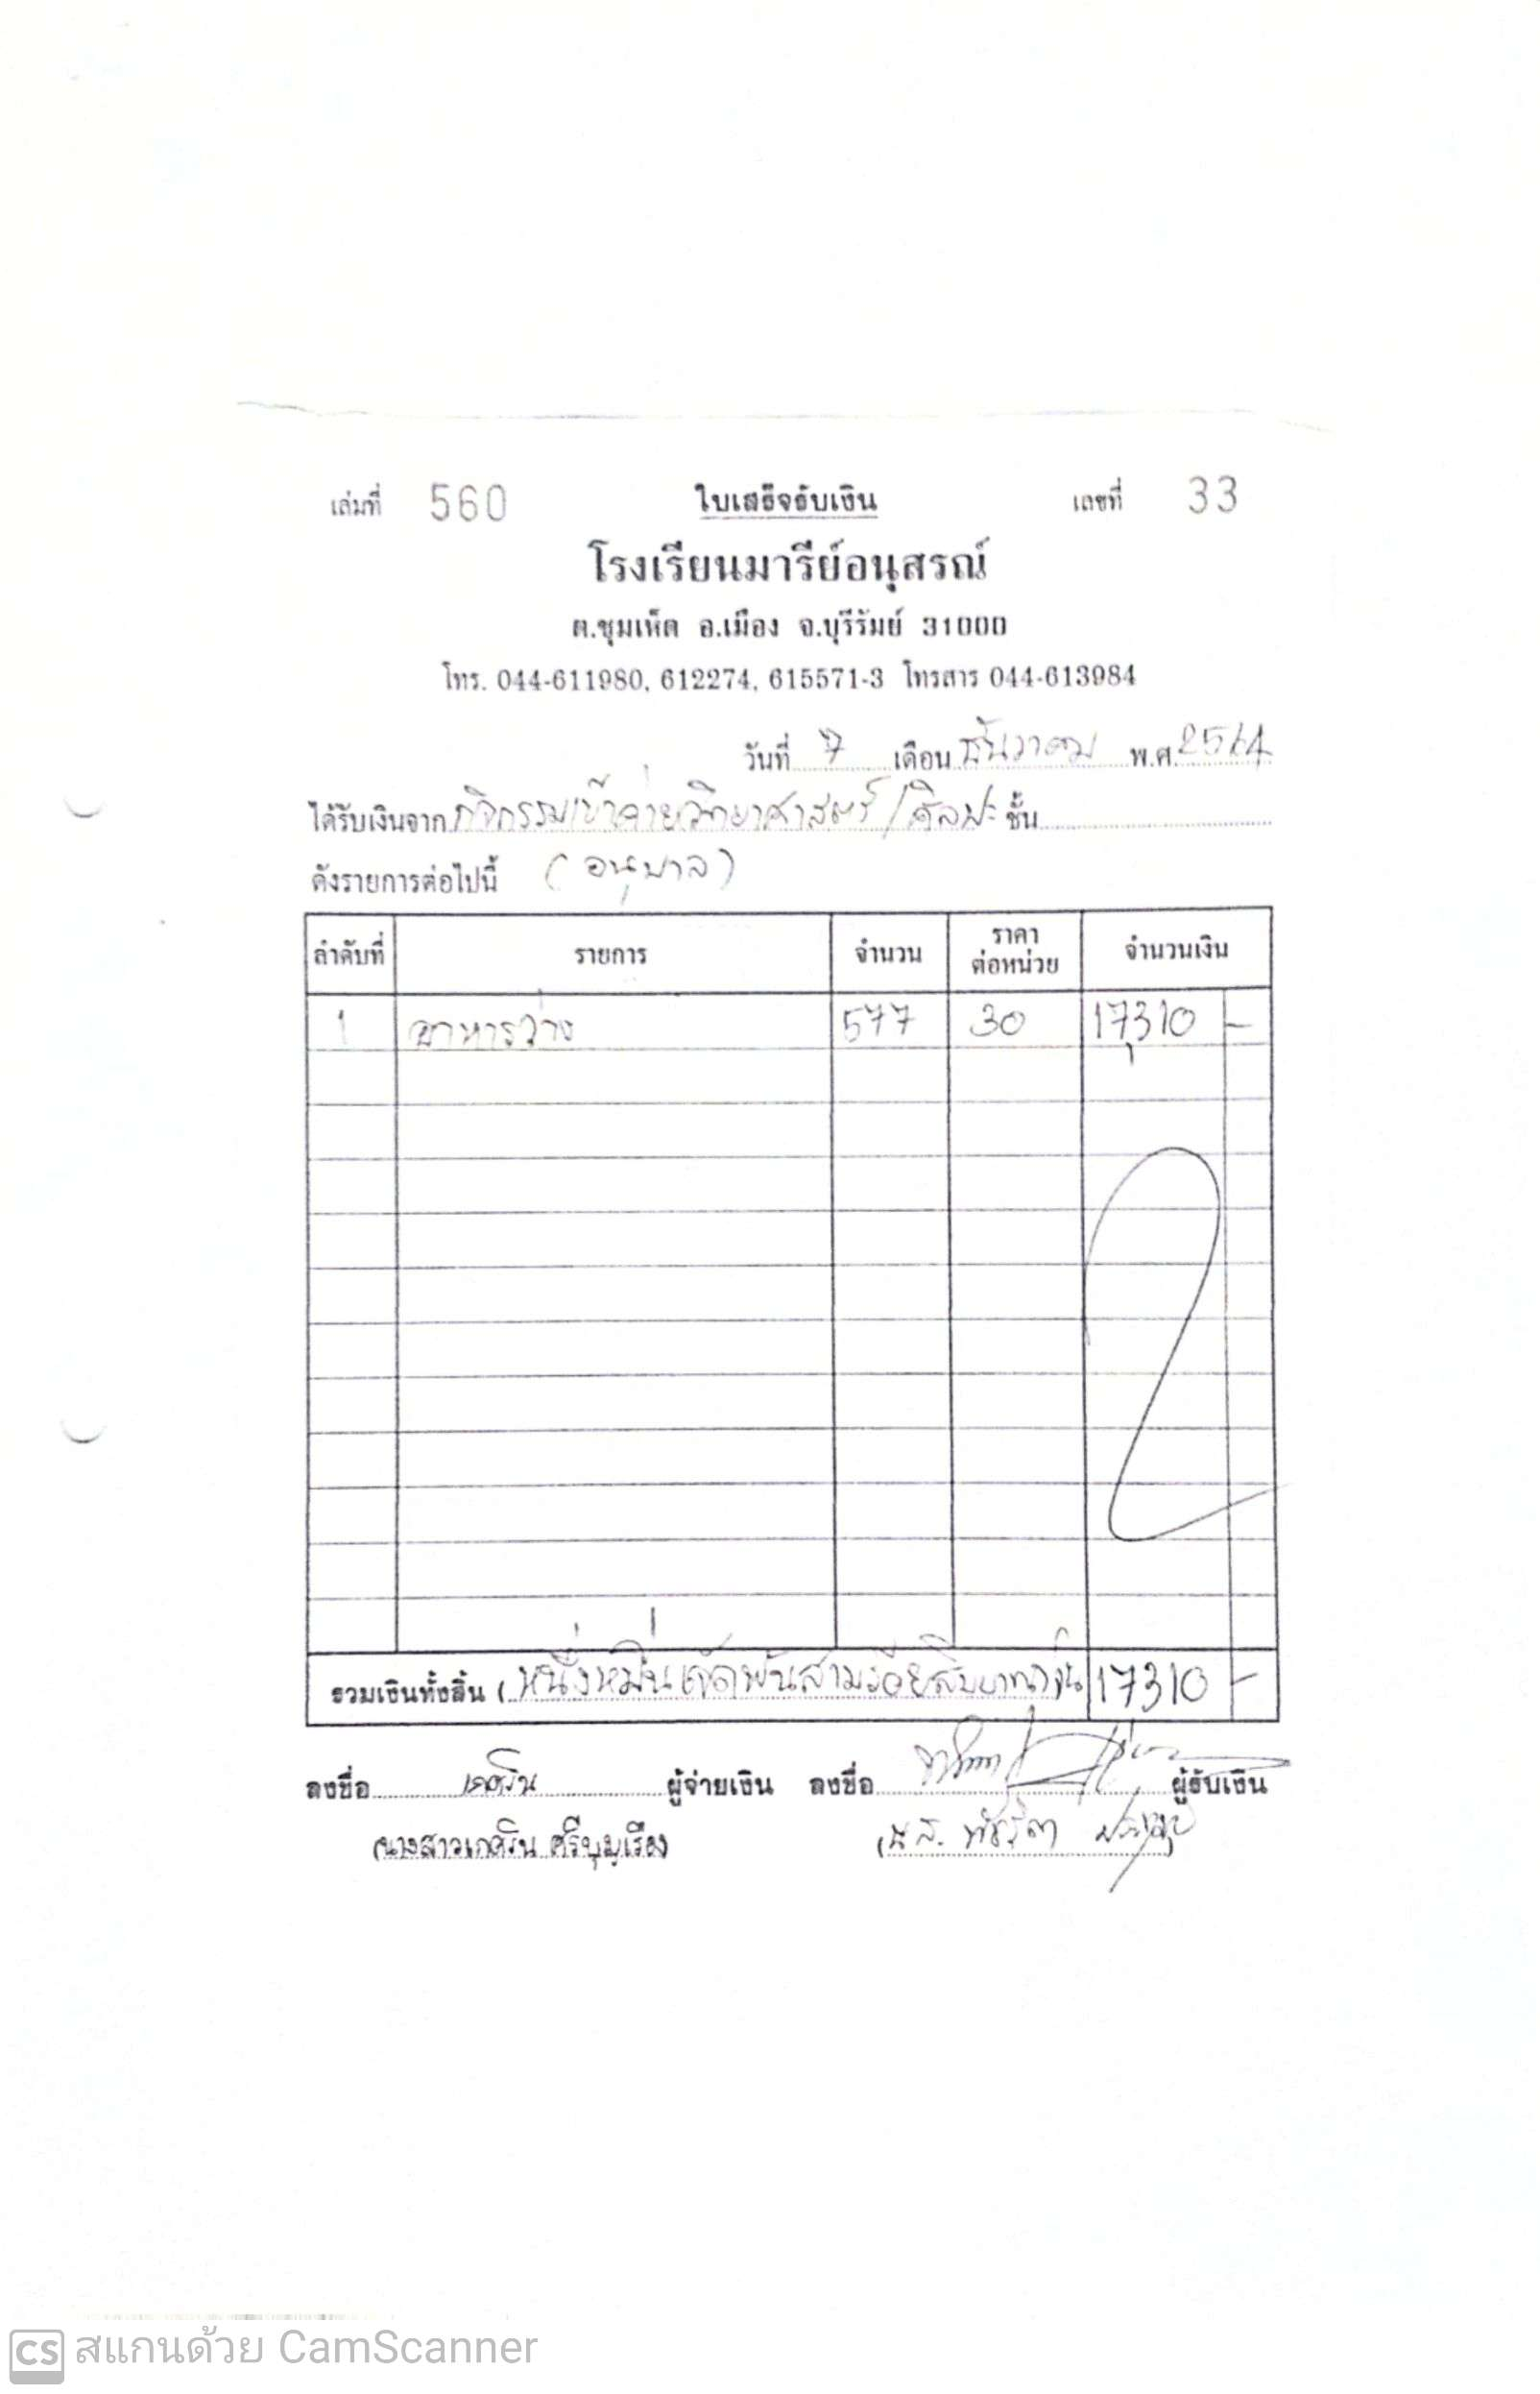 เล่มที่ 560 ใบเสร็จรับเงิน เลขที่ 33
โรงเรียนมารีย์อนุสรณ์
ต.ชุมเห็ด อ.เมือง จ.บุรีรัมย์ 31000
โทร. 044-611980, 612274, 615571-3 โทรสาร 044-613984
วันที่ 7 เดือน ธันวาคม พ.ศ. 2564
ได้รับเงินจาก กิจกรรมเข้าค่ายวิทยาศาสตร์/ศิลปะ ชั้น
ดังรายการต่อไปนี้ (อนุบาล)
ลำดับที่ รายการ จำนวน ราคาต่อหน่วย จำนวนเงิน
1 อาหารว่าง 577 30 17,310 -
รวมเงินทั้งสิ้น (หนึ่งหมื่นเจ็ดพันสามร้อยสิบบาทถ้วน 17310 -
ลงชื่อ เกศริน ผู้จ่ายเงิน ลงชื่อ ผู้รับเงิน
(นางสาวเกศริน ศรีบุญเรือง) (น.ส.
CS สแกนด้วย CamScanner